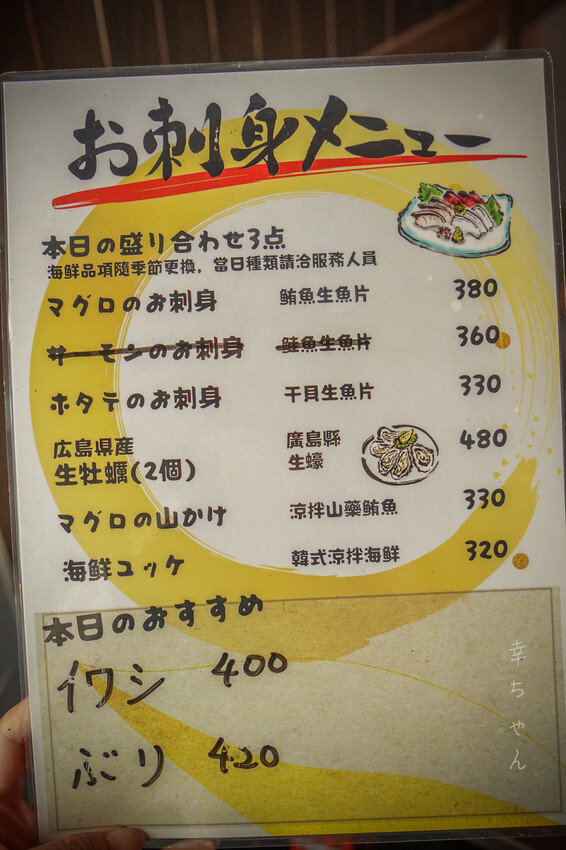 お刺身メニュー
本日の盛り合わせ3点
海鮮品項隨季節更換，當日種類請洽服務人員
マグロのお刺身 鮪魚生魚片 380
サーモンのお刺身 鮭魚生魚片 360
ホタテのお刺身 干貝生魚片 330
広島県産 廣島縣
生牡蠣(2個) 生蠔 480
マグロの山かけ 涼拌山藥鮪魚 330
海鮮ユッケ 韓式涼拌海鮮 320
本日のおすすめ
イワシ 400
ぶり 420
幸ちゃん